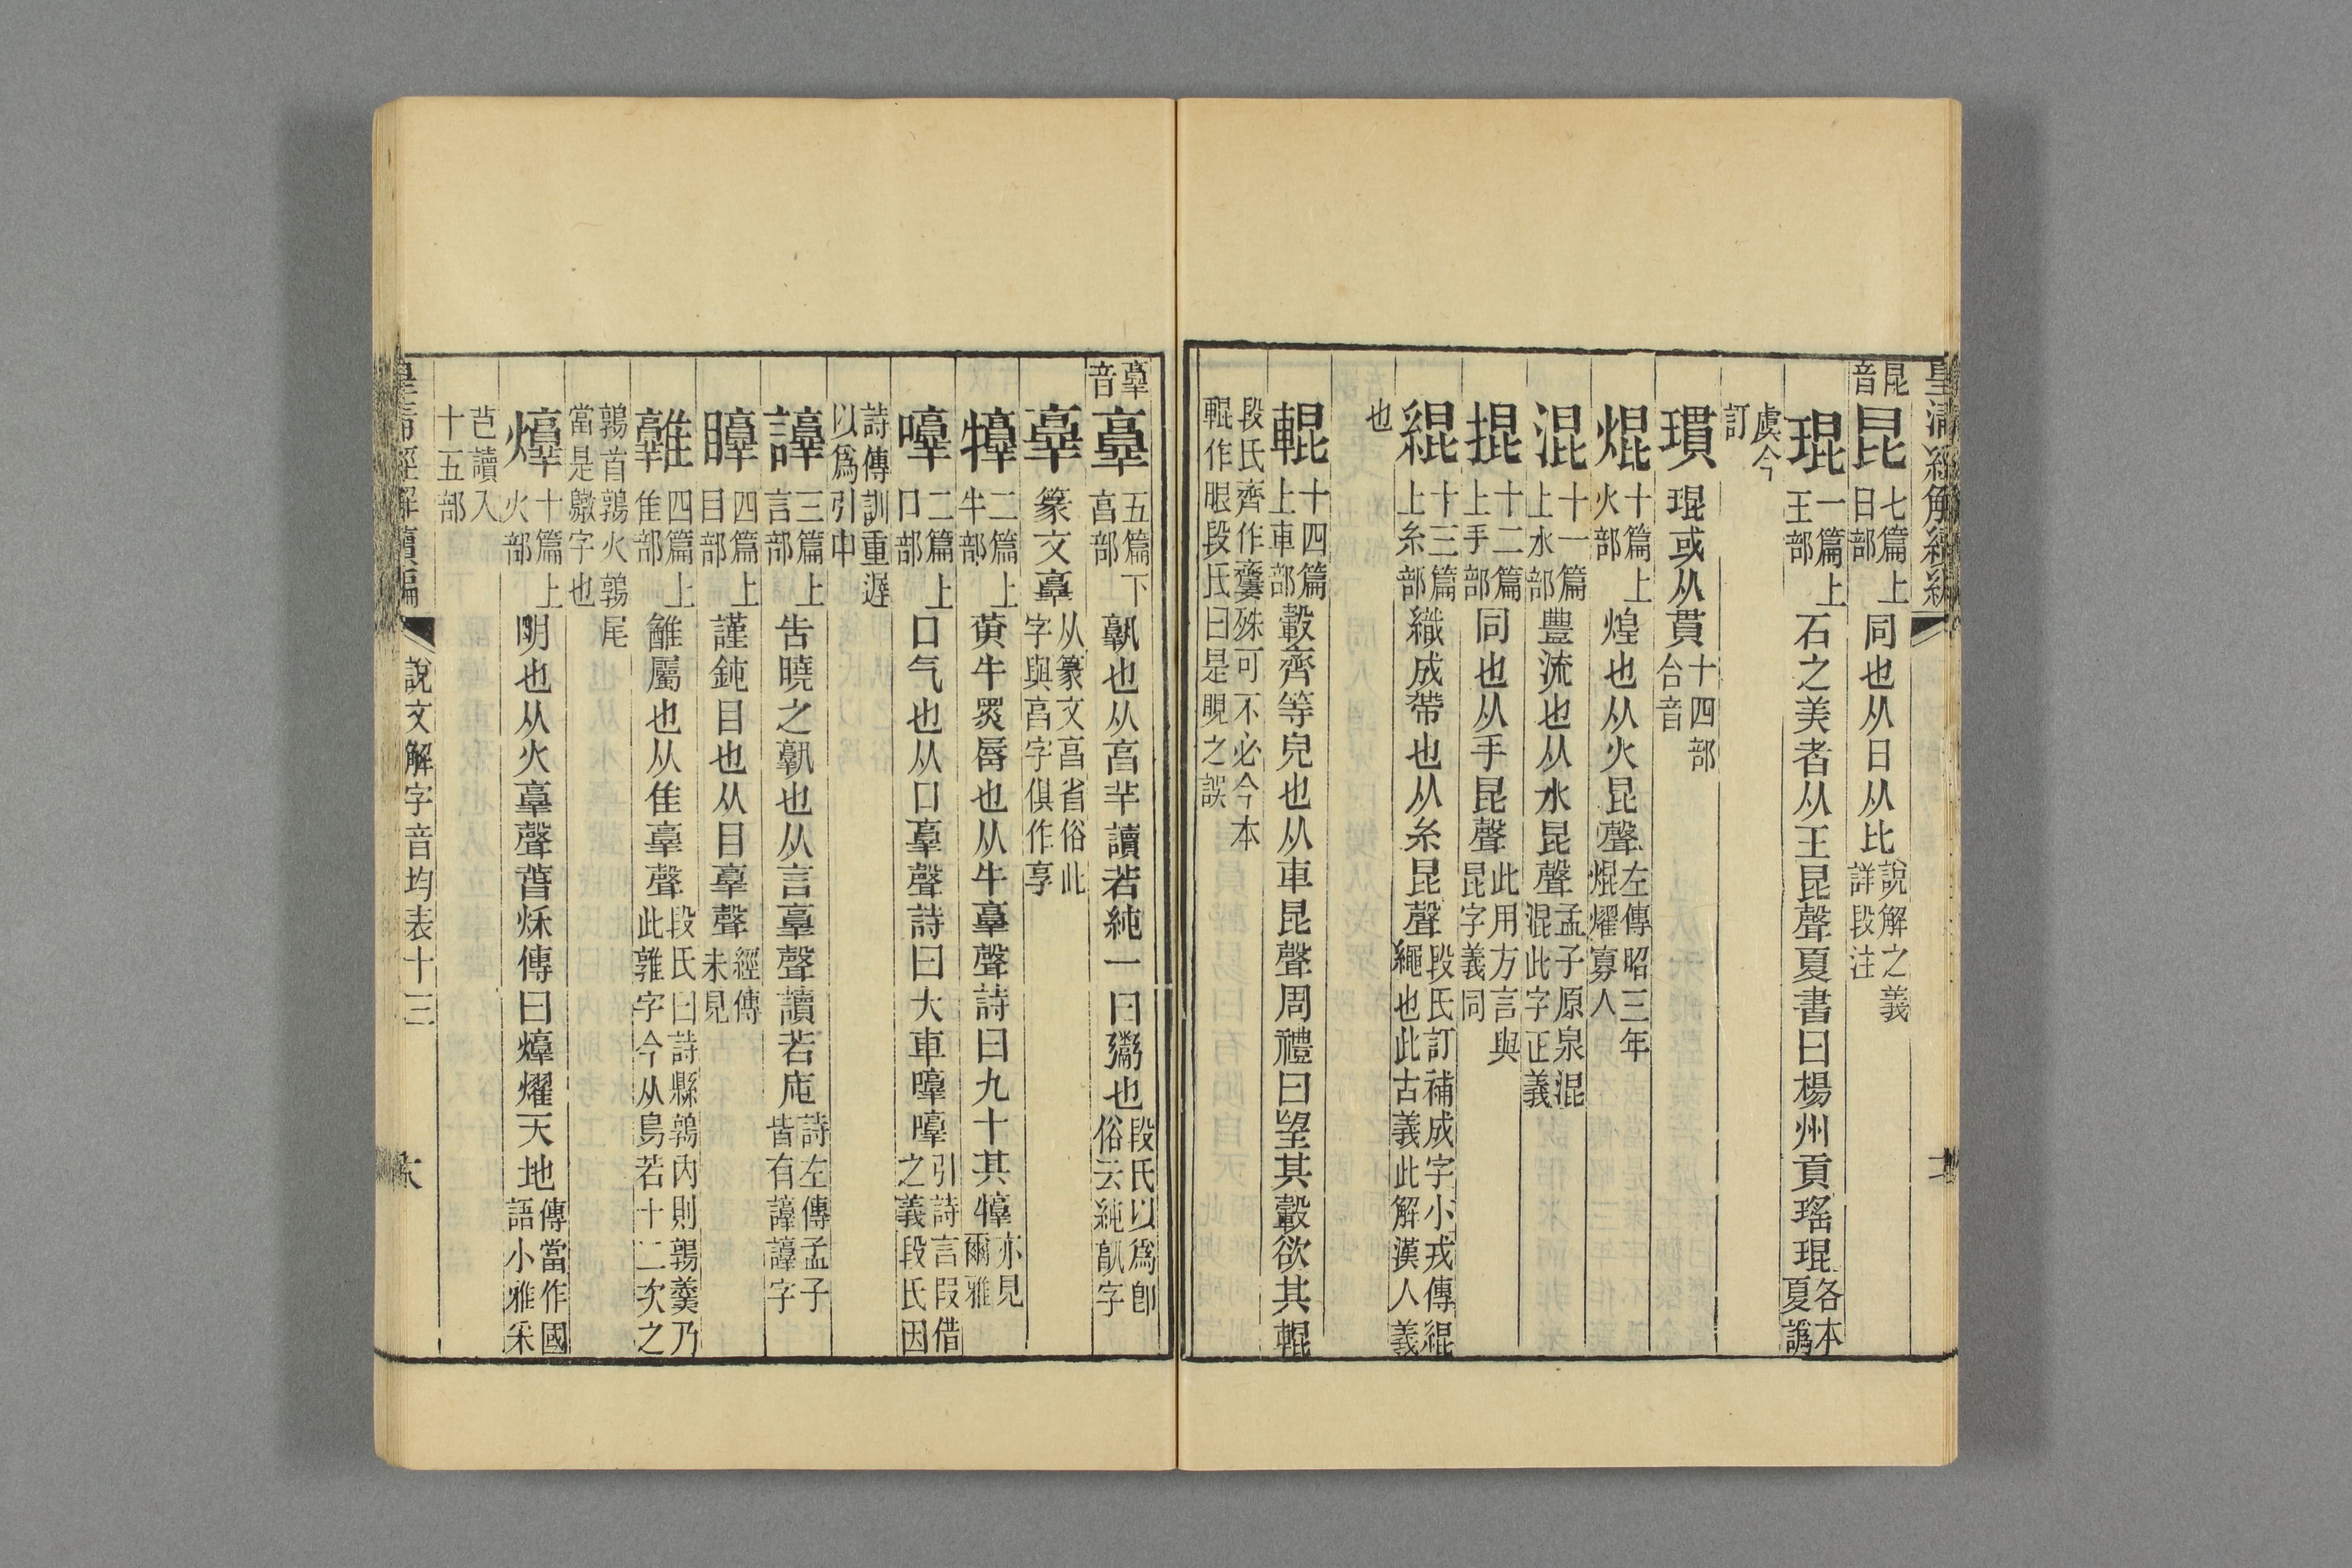 昆音
昆 七篇上日部 同也从日从比 說解之義詳段注
琨 一篇上王部 石之美者从王昆聲夏書曰楊州貢瑤琨 各本夏譌
虞今訂
瑻 琨或从貫 十四部合音
焜 十篇上火部 煌也从火昆聲 左傳昭三年焜燿寡人
混 十一篇上水部 豐流也从水昆聲 孟子原泉混混此字正義
掍 十二篇上手部 同也从手昆聲 此用方言與昆字義同
緄 十三篇上糸部 織成帶也从糸昆聲 段氏訂補成字小戎傳緄繩也此古義此解漢人義
也
輥 十四篇上車部 轂齊等皃也从車昆聲周禮曰望其轂欲其輥
段氏齊作齌殊可不必今本輥作眼段氏曰是睍之誤
𦎫音
𦎫 五篇下亯部 孰也从亯羊讀若純一曰鬻也 段氏以爲卽俗云純𩚳字
𦎧 篆文𦎫 从篆文亯省俗此字與亯字俱作享
犉 二篇上牛部 黃牛黑脣也从牛𦎫聲詩曰九十其犉 亦見爾雅
啍 二篇上口部 口气也从口𦎫聲詩曰大車啍啍 引詩言叚借之義段氏因
詩傳訓重遲以爲引申
諄 三篇上言部 告曉之孰也从言𦎫聲讀若庉 詩左傳孟子皆有諄諄字
䁭 四篇上目部 謹鈍目也从目𦎫聲 經傳未見
雜 四篇上隹部 雒屬也从隹𦎫聲 段氏曰詩縣鶉內則鶉羹乃此鶉字今从鳥若十二次之
鶉首鶉火鶉尾當是鷻字也
焞 十篇上火部 明也从火𦎫聲春秌傳曰焞燿天地 傳當作國語小雅采
芑讀入十五部
說文解字音均表十三